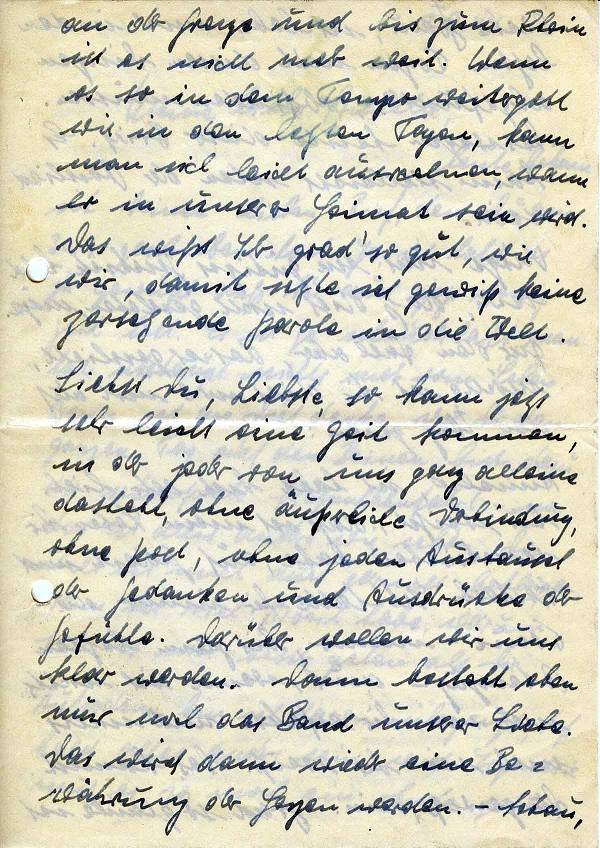 an der Grenze und bis zum Rhein
ist es nicht mehr weit. Wenn
es so in dem Tempo weitergeht
wie in den letzten Tagen, kann
man sich leicht ausrechnen, wann
er in unserer Heimat sein wird.
Das wißt Ihr grad' so gut, wie
wir, damit setze ich gewiß keine
zersetzende Parole in die Welt.
Siehst Du, Liebste, so kann jetzt
sehr leicht eine Zeit kommen,
in der jeder von uns ganz alleine
dasteht, ohne äußerliche Verbindung,
ohne Post, ohne jeden Austausch
der Gedanken und Ausdrücke der
Gefühle. Darüber wollen wir uns
klar werden. Dann besteht eben
nur noch das Band unserer Liebe.
Das wird dann wieder eine Be=
währung der Herzen werden. – Schau,